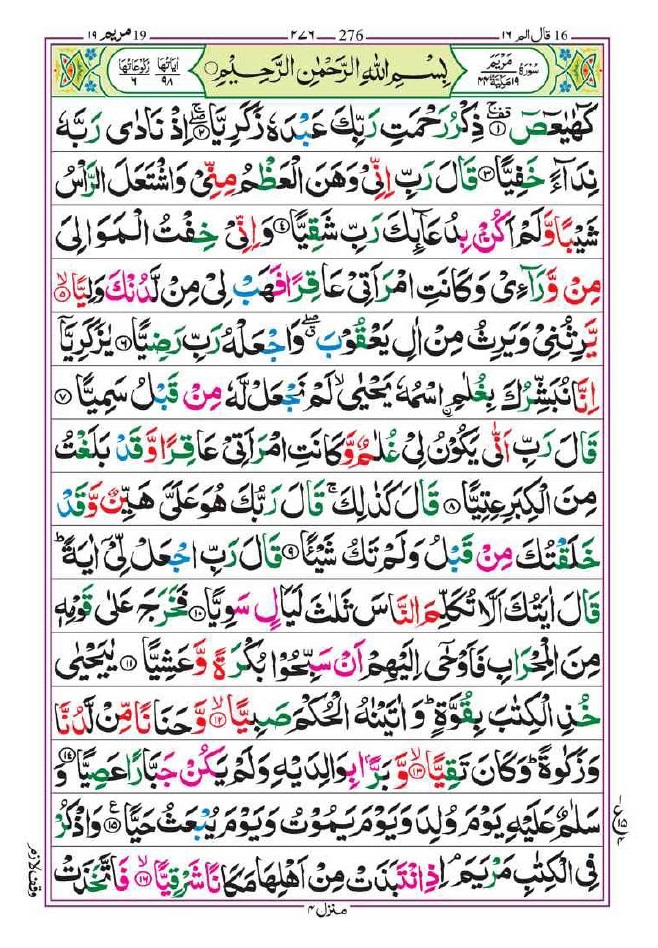 19 مريم ١٩ 276 ٢٧٦ 16 قال الم ١٦
سُوْرَةُ مَرْيَمَ ١٩ مَكِّيَّةٌ ٤٤ بِسْمِ اللهِ الرَّحْمٰنِ الرَّحِيْمِ اٰيَاتُهَا ٩٨ رُكُوْعَاتُهَا ٦
كٓهٰيٰعٓصٓ ۚ ۱ ذِكْرُ رَحْمَتِ رَبِّكَ عَبْدَهٗ زَكَرِيَّا ۚ ۲ اِذْ نَادٰى رَبَّهٗ
نِدَآءً خَفِيًّا ۳ قَالَ رَبِّ اِنِّىْ وَهَنَ الْعَظْمُ مِنِّىْ وَاشْتَعَلَ الرَّاْسُ
شَيْبًا وَّلَمْ اَكُنْۢ بِدُعَآئِكَ رَبِّ شَقِيًّا ٤ وَاِنِّىْ خِفْتُ الْمَوَالِىَ
مِنْ وَّرَآءِىْ وَكَانَتِ امْرَاَتِىْ عَاقِرًا فَهَبْ لِىْ مِنْ لَّدُنْكَ وَلِيًّا ۙ ٥
يَّرِثُنِىْ وَيَرِثُ مِنْ اٰلِ يَعْقُوْبَ ۖ وَاجْعَلْهُ رَبِّ رَضِيًّا ٦ يٰزَكَرِيَّآ
اِنَّا نُبَشِّرُكَ بِغُلٰمِ ِۨاسْمُهٗ يَحْيٰى ۙ لَمْ نَجْعَلْ لَّهٗ مِنْ قَبْلُ سَمِيًّا ۷
قَالَ رَبِّ اَنّٰى يَكُوْنُ لِىْ غُلٰمٌ وَّكَانَتِ امْرَاَتِىْ عَاقِرًا وَّقَدْ بَلَغْتُ
مِنَ الْكِبَرِ عِتِيًّا ۸ قَالَ كَذٰلِكَ ۚ قَالَ رَبُّكَ هُوَ عَلَىَّ هَيِّنٌ وَّقَدْ
خَلَقْتُكَ مِنْ قَبْلُ وَلَمْ تَكُ شَيْئًا ۹ قَالَ رَبِّ اجْعَلْ لِّىْٓ اٰيَةً ؕ
قَالَ اٰيَتُكَ اَلَّا تُكَلِّمَ النَّاسَ ثَلٰثَ لَيَالٍ سَوِيًّا ۱۰ فَخَرَجَ عَلٰى قَوْمِهٖ
مِنَ الْمِحْرَابِ فَاَوْحٰٓى اِلَيْهِمْ اَنْ سَبِّحُوْا بُكْرَةً وَّعَشِيًّا ۱۱ يٰيَحْيٰى
خُذِ الْكِتٰبَ بِقُوَّةٍ ؕ وَاٰتَيْنٰهُ الْحُكْمَ صَبِيًّا ۙ ۱۲ وَّحَنَانًا مِّنْ لَّدُنَّا
وَزَكٰوةً ؕ وَكَانَ تَقِيًّا ۙ ۱۳ وَّبَرًّۢا بِوَالِدَيْهِ وَلَمْ يَكُنْ جَبَّارًا عَصِيًّا ۱٤ وَ
سَلٰمٌ عَلَيْهِ يَوْمَ وُلِدَ وَيَوْمَ يَمُوْتُ وَيَوْمَ يُبْعَثُ حَيًّا ۱٥ ع وَاذْكُرْ
فِى الْكِتٰبِ مَرْيَمَ ۘ اِذِ انْتَبَذَتْ مِنْ اَهْلِهَا مَكَانًا شَرْقِيًّا ۙ ۱٦ فَاتَّخَذَتْ
وقف لازم
منزل ٤